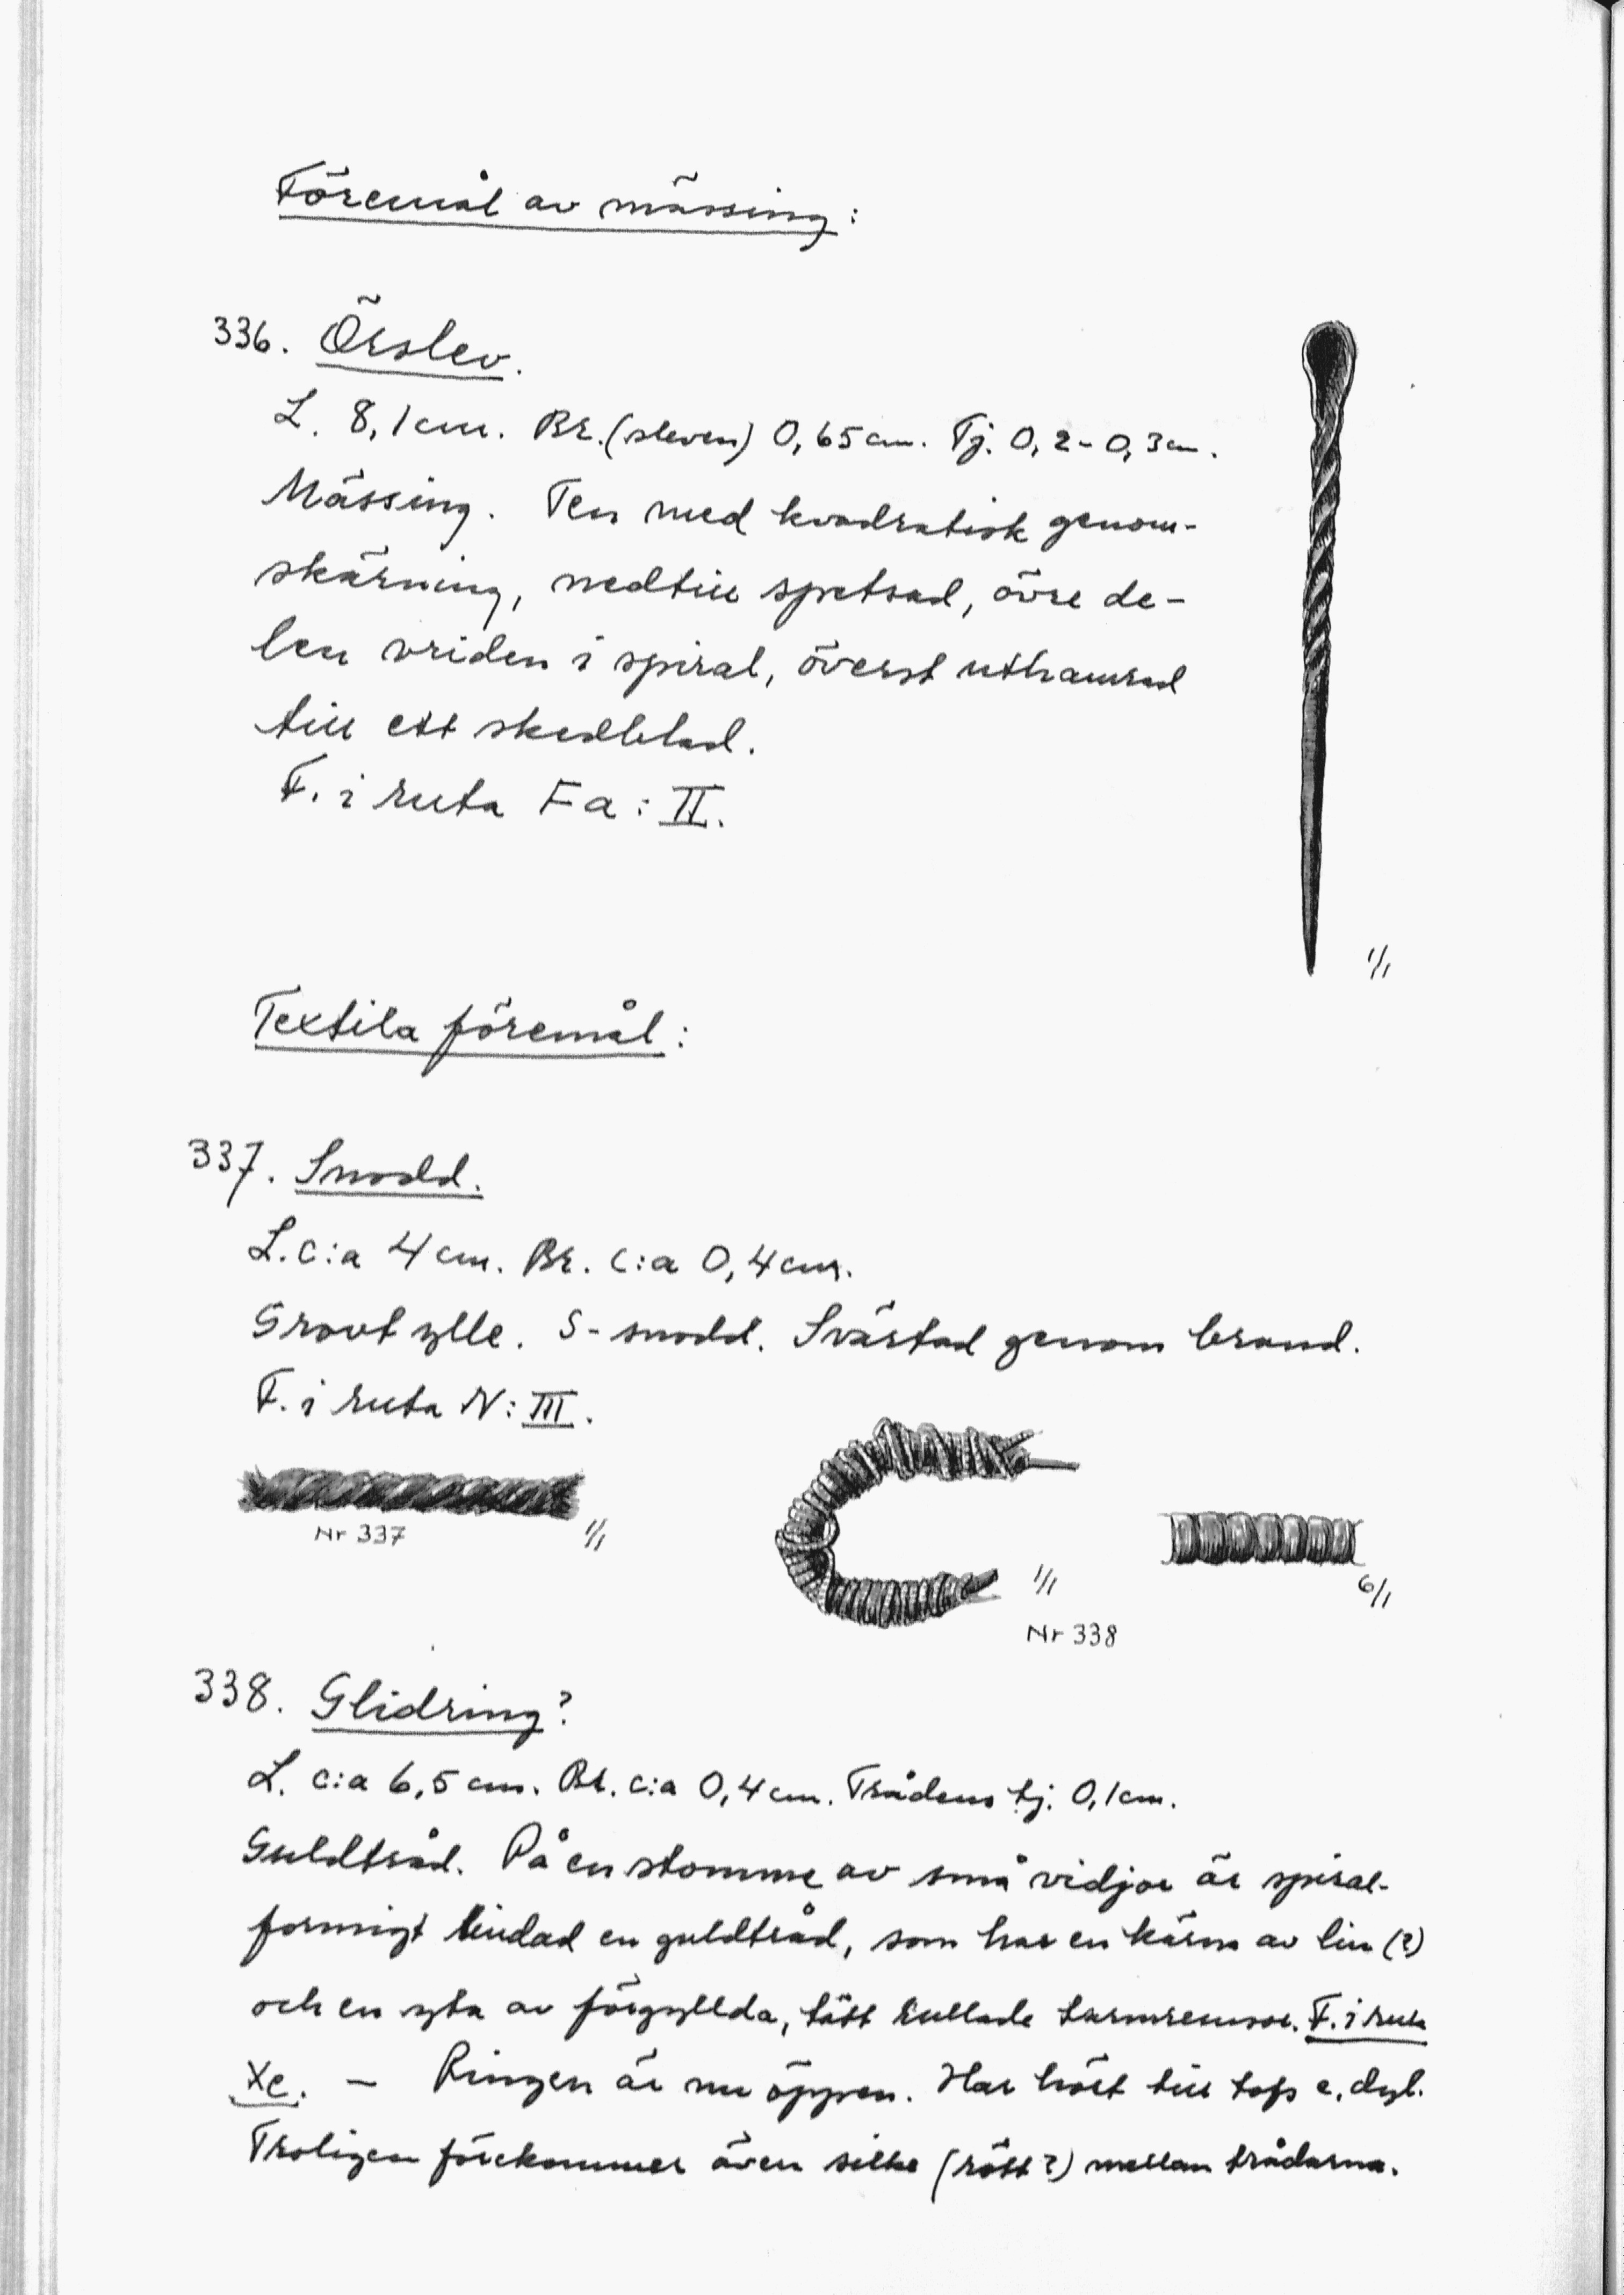 Föremål av mässing:
336. Örslev.
L. 8,1 cm. Br. (sleven) 0,65 cm. Tj. 0,2-0,3 cm.
Mässing. Ten med kvadratisk genom-
skärning, nedtill spetsad, övre de-
len vriden i spiral, överst uthamrad
till ett skedblad.
F. i ruta Fa: II.
1/1
Textila föremål:
337. Snodd.
L. c:a 4 cm. Br. c:a 0,4 cm.
Grovt ylle. S-snodd. Svärtad genom brand.
F. i ruta N: III.
Nr 337 1/1
1/1
Nr 338
6/1
338. Glidring?
L. c:a 6,5 cm. Br. c:a 0,4 cm. Trådens tj. 0,1 cm.
Guldtråd. På en stomme av små vidjor är spiral-
formigt lindad en guldtråd, som har en kärna av lin (?)
och en yta av förgyllda, tätt rullade tarmremsor. F. i ruta
Xc. – Ringen är nu öppen. Har hört till tofs e. dyl.
Troligen förekommer även silke (rött?) mellan trådarna.